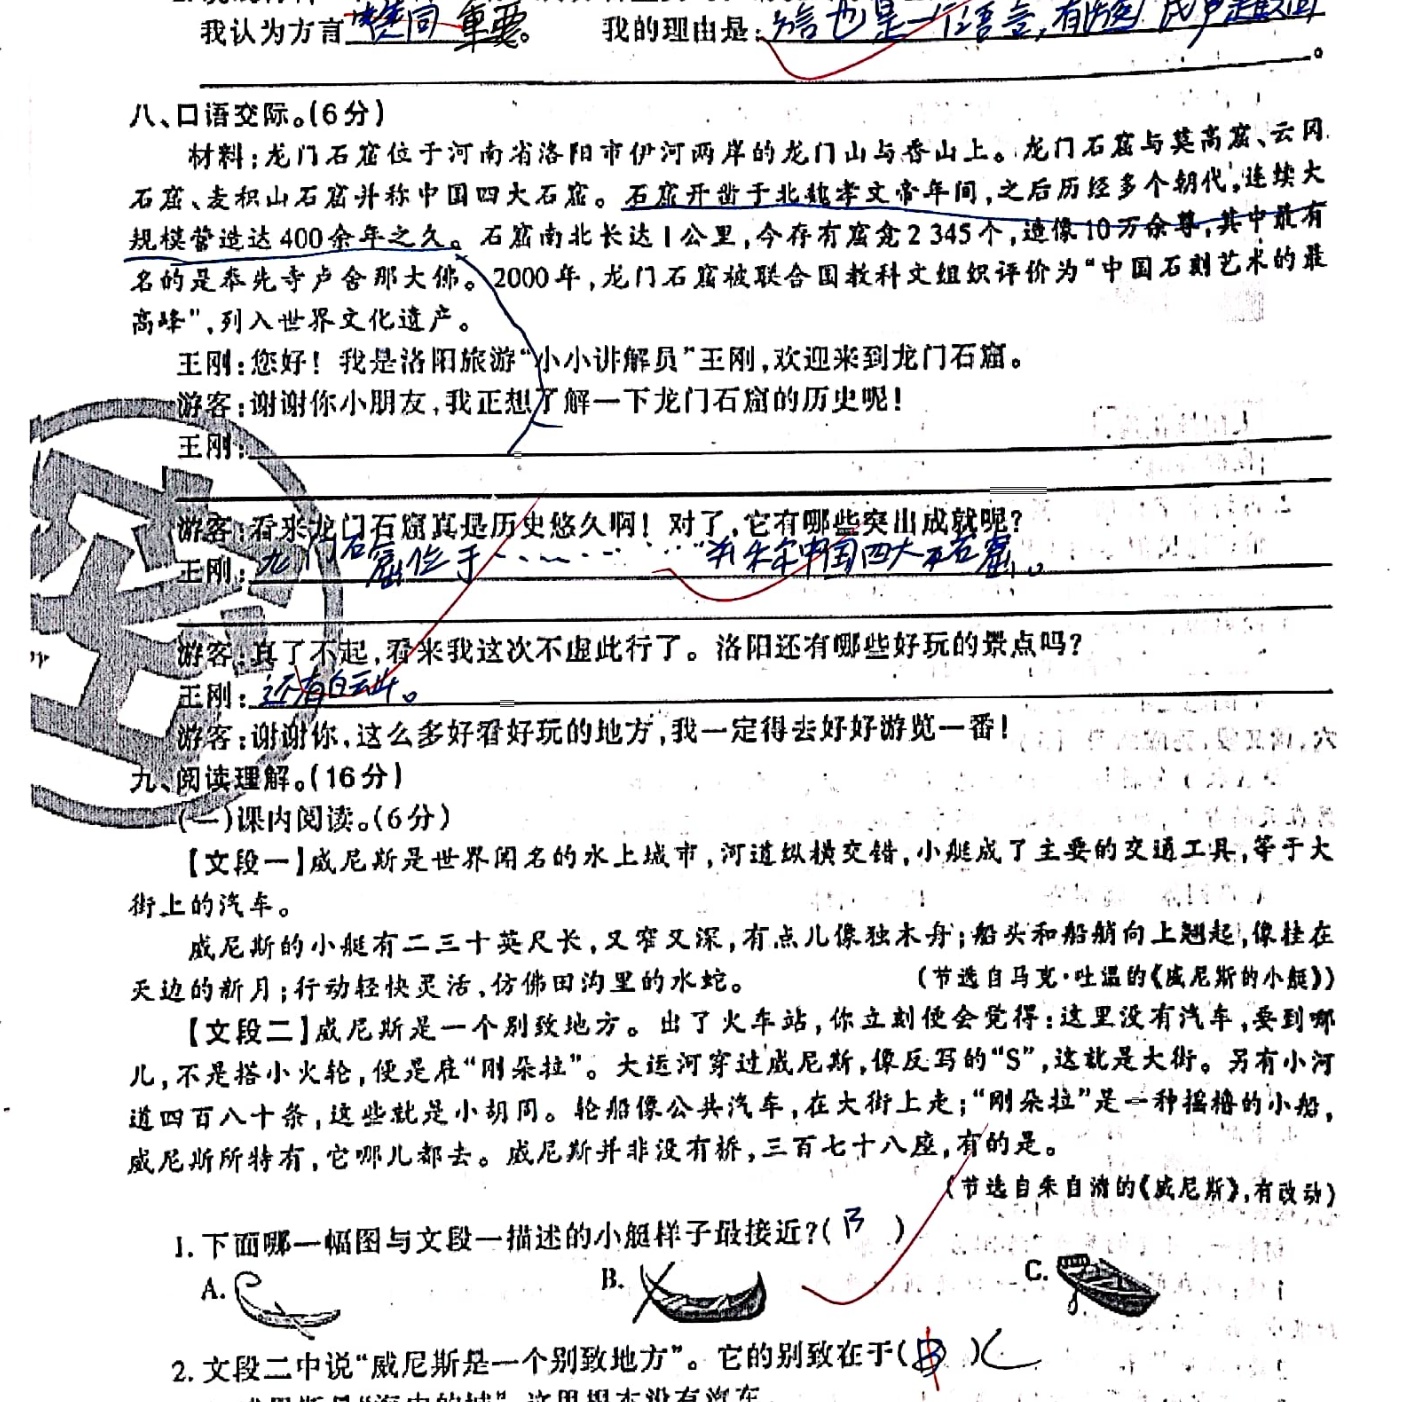 我认为方言 重要。 我的理由是:方言也是一种语言,有
八、口语交际。(6分)
材料:龙门石窟位于河南省洛阳市伊河两岸的龙门山与香山上。龙门石窟与莫高窟、云冈
石窟、麦积山石窟并称中国四大石窟。石窟开凿于北魏孝文帝年间,之后历经多个朝代,连续大
规模营造达400余年之久。石窟南北长达1公里,今存有窟龛2 345个,造像10万余尊,其中最有
名的是奉先寺卢舍那大佛。2000年,龙门石窟被联合国教科文组织评价为“中国石刻艺术的最
高峰”,列入世界文化遗产。
王刚:您好!我是洛阳旅游“小小讲解员”王刚,欢迎来到龙门石窟。
游客:谢谢你小朋友,我正想了解一下龙门石窟的历史呢!
王刚:
游客:看来龙门石窟真是历史悠久啊!对了,它有哪些突出成就呢?
王刚:龙门石窟位于……并称中国四大石窟。
游客:真了不起,看来我这次不虚此行了。洛阳还有哪些好玩的景点吗?
王刚:还有白云山。
游客:谢谢你,这么多好看好玩的地方,我一定得去好好游览一番!
九、阅读理解。(16分)
(一)课内阅读。(6分)
【文段一】威尼斯是世界闻名的水上城市,河道纵横交错,小艇成了主要的交通工具,等于大
街上的汽车。
威尼斯的小艇有二三十英尺长,又窄又深,有点儿像独木舟;船头和船艄向上翘起,像挂在
天边的新月;行动轻快灵活,仿佛田沟里的水蛇。 (节选自马克·吐温的《威尼斯的小艇》)
【文段二】威尼斯是一个别致地方。出了火车站,你立刻便会觉得:这里没有汽车,要到哪
儿,不是搭小火轮,便是雇“刚朵拉”。大运河穿过威尼斯,像反写的“S”,这就是大街。另有小河
道四百八十条,这些就是小胡同。轮船像公共汽车,在大街上走;“刚朵拉”是一种摇橹的小船,
威尼斯所特有,它哪儿都去。威尼斯并非没有桥,三百七十八座,有的是。
(节选自朱自清的《威尼斯》,有改动)
1.下面哪一幅图与文段一描述的小艇样子最接近?( B )
A. B. C.
2.文段二中说“威尼斯是一个别致地方”。它的别致在于( B )C